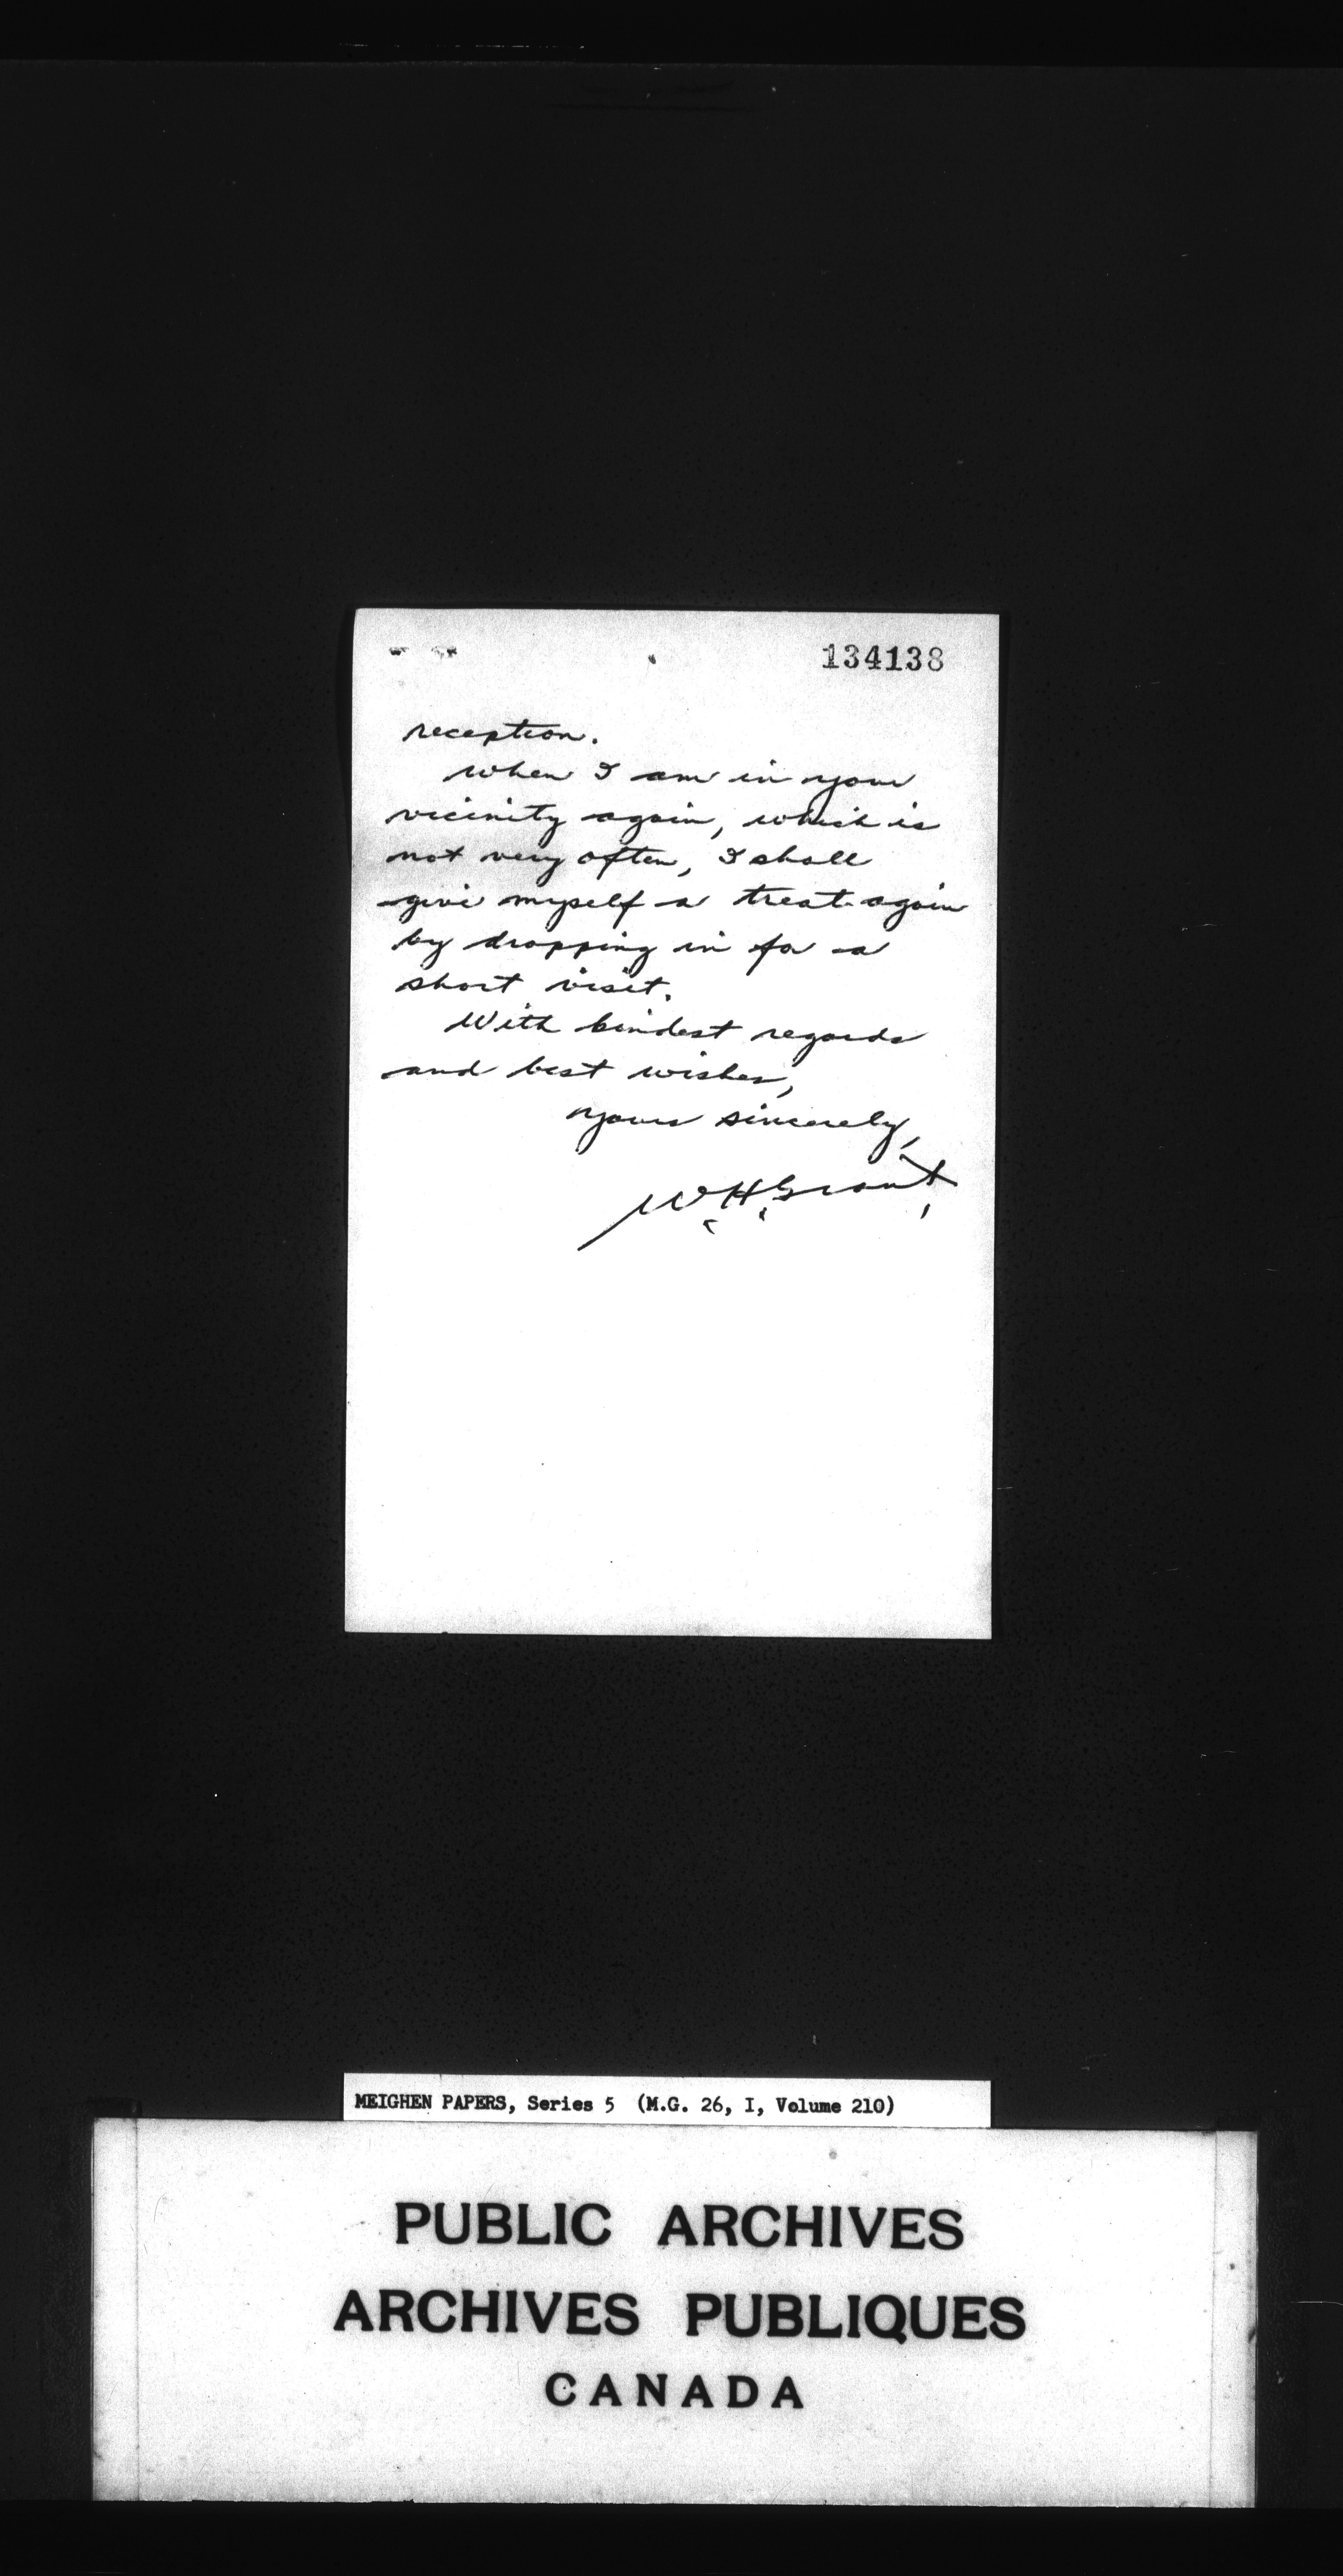 134138
reception.
When I am in your
vicinity again, which is
not very often, I shall
give myself a treat again
by dropping in for a
short visit.
With kindest regards
and best wishes,
Yours sincerely,
W.H.Grant.
MEIGHEN PAPERS, Series 5 (M.G. 26, I, Volume 210)
PUBLIC ARCHIVES
ARCHIVES PUBLIQUES
CANADA